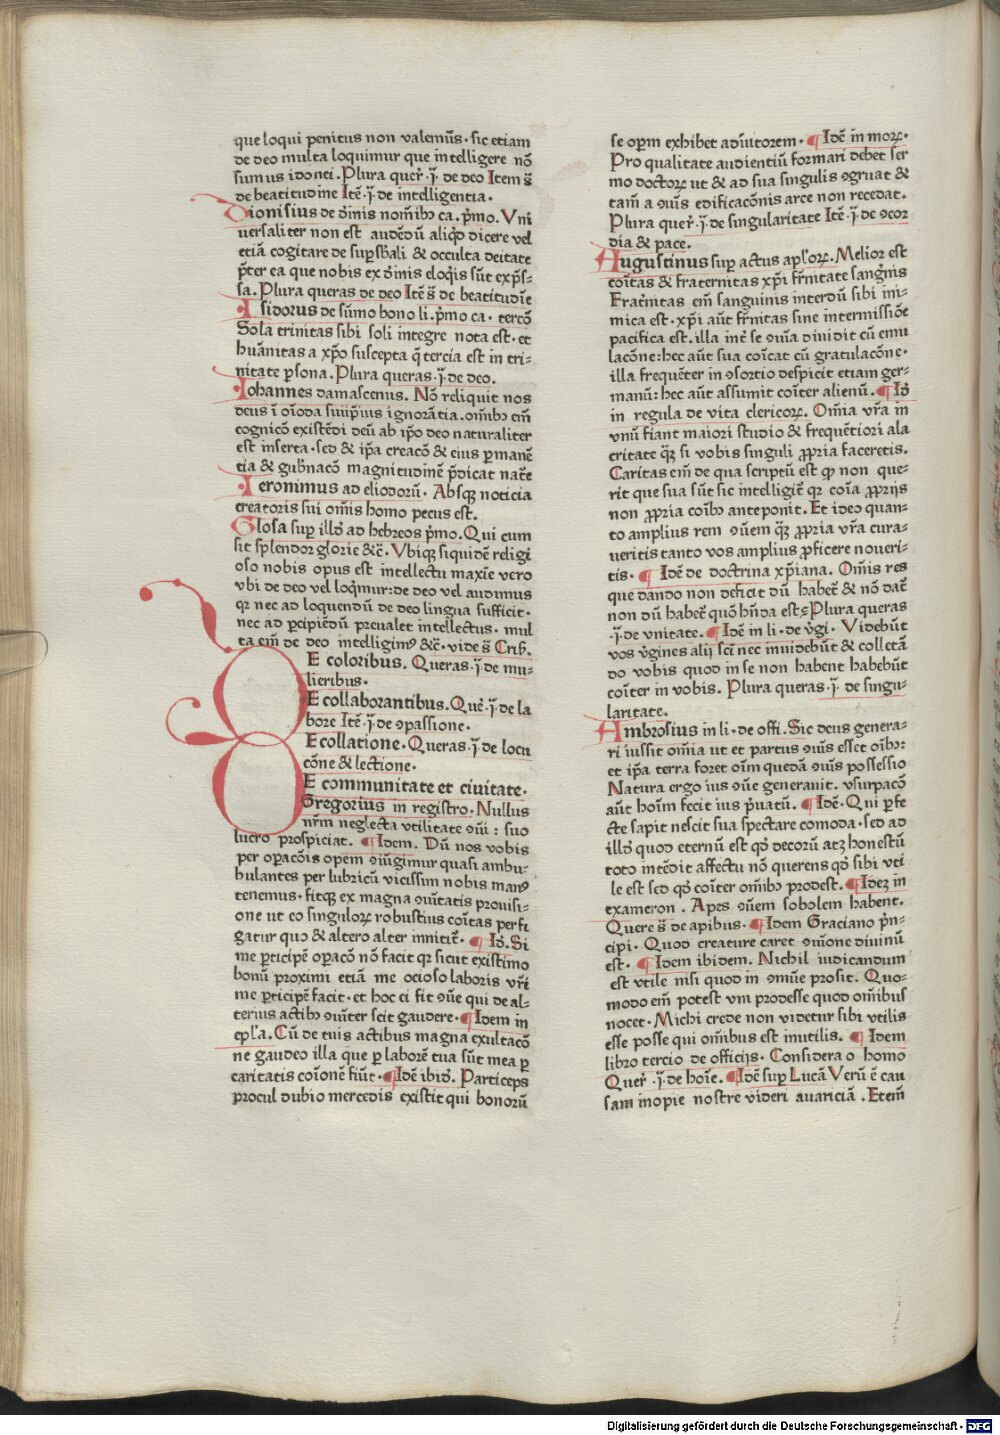 que loqui penitus non valemus̄. sic etiam
de deo multa loquimur que intelligere nō
sumus idonei. Plura quer̄. .ī. de deo Item s̄
de beatitudine Itē .ī. de intelligentia.
Dionisius de dīinis nomībꝫ ca. p̄mo. Vni
uersaliter non est audēdū aliqd̄ dicere vel
etiā cogitare de supsb̄ali & occulta deitate
p̄ter ea que nobis ex dīinis eloqīs sūt exp̄s-
sa. Plura queras de deo Itē s̄ de beatitudīe
Isidorus de sūmo bono li. p̄mo ca. tercō
Sola trinitas sibi soli integre nota est. et
hūanitas a xp̄o suscepta q̄ tercia est in tri-
nitate ꝑsona. Plura queras .ī. de deo.
Iohannes damascenus. Nō reliquit nos
deus ī oīoda ignorātia. omībꝫ em̄
cognicō existēdi deū ab ip̄o deo naturaliter
est inserta. sed & ip̄a creacō & eius ꝑmanē
tia & gub̄nacō magnitudinē p̄dicat nat̄e
Ieronimus ad eliodorū. Absqꝫ noticia
creatoris sui om̄is homo pecus est.
Glosa sup illd̄ ad hebreos p̄mo. Qui cum
sit splendor glorie &c̄. Vbiqꝫ siquidē religi
oso nobis opus est intellectu maxīe vero
vbi de deo vel loqm̄ur: de deo vel audimus
qꝛ nec ad loquendū de deo lingua sufficit.
nec ad ꝑcipiēdū preualet intellectus. mul
ta em̄ de deo intelligimꝰ &c̄. vide s̄ Crib̄.
E coloribus. Queras .ī. de mu-
lieribus.
E collaborantibus. Quer̄ .ī. de la
bore Itē .ī. de ꝯpassione.
E collatione. Queras .ī. de locu
cōne & lectione.
E communitate et ciuitate.
Gregorius in registro. Nullus
nr̄m neglecta vtilitate ꝯūi: suo
lucro prospiciat. ¶ Idem. Dū nos vobis
per oꝑacōis opem ꝯiūgimur quasi ambu-
bulantes per lubricū vicissim nobis manꝰ
tenemus. fitqꝫ ex magna ꝯūitatis prouisi-
one ut eo singuloꝝ robustius cōitas perfi
gatur quo & altero alter innitit̄. ¶ Id̄. Si
me ꝑticipē oꝑacō nō facit qꝛ sicut existimo
bonū proximi etiā me ocioso laboris vr̄i
me ꝑticipē facit. et hoc ei fit ꝯūe qui de al-
terius actibꝫ ꝯūiter scit gaudere. ¶ Idem in
epl̄a. Cū de tuis actibus magna exultacō
ne gaudeo illa que ꝑ laborē tua sūt mea ꝑ
caritatis coīonē fiūt. ¶ Idē ibid̄. Particeps
procul dubio mercedis existit qui bonorū
se opm exhibet adiutorem. ¶ Idē in moꝝ.
Pro qualitate audientiū formari debet ser
mo doctoꝝ ut & ad sua singulis ꝯgruat &
tam̄ a ꝯūis edificacōnis arce non recedat.
Plura quer̄ .ī. de singularitate Itē .ī. de ꝯcor
dia & pace.
Augustinus sup actus apl'oꝝ. Melior est
cōitas & fraternitas xp̄i fr̄nitate sangn̄is
Frat̄nitas em̄ sanguinis interdū sibi ini-
mica est. xp̄i aūt fr̄nitas sine intermissiōe
pacifica est. illa int̄ se ꝯūa diuidit cū emu
lacōne: hec aūt sua cōicat cū gratulacōne.
illa frequēter in ꝯsortio despicit etiam ger-
manū: hec aūt assumit cōiter alienū. ¶ Id̄
in regula de vita clericoꝝ. Om̄ia vr̄a in
vnū fiant maiori studio & frequētiori ala
critate qꝫ̄ si vobis singuli ꝓpria faceretis.
Caritas em̄ de qua scriptū est qꝫ non que-
rit que sua sūt sic intelligit̄ qꝛ cōia ꝓprijs
non ꝓpria cōibꝫ anteponit. Et ideo quan-
to amplius rem ꝯūem qꝫ̄ ꝓpria vr̄a cura-
ueritis tanto vos amplius ꝓficere noueri-
tis. ¶ Idē de doctrina xp̄iana. Om̄is res
que dando non deficit dū habet̄ & nō dat̄
non dū habet̄ quō hn̄da est. Plura queras
.ī. de vnitate. ¶ Idē in li. de v̄gi. Videbūt
vos v̄gines alij scī nec inuidebūt & collectā
do vobis quod in se non habent habebūt
cōiter in vobis. Plura queras .ī. de singu-
laritate.
Ambrosius in li. de offi. Sic deus genera-
ri iussit om̄ia ut et partus ꝯūis esset oībꝫ:
et ip̄a terra foret oīm quedā ꝯūis possessio
Natura ergo ius ꝯūe generauit. vsurpacō
aūt hoīm fecit ius p̄uatū. ¶ Idē. Qui ꝑfe
cte sapit nescit sua spectare comoda. sed ad
illd̄ quod eternū est qd̄ decorū atꝫ honestū
toto intēdit affectu nō querens qd̄ sibi vti
le est sed qd̄ cōiter om̄ibꝫ prodest. ¶ Idez in
exameron. Apes ꝯūem sobolem habent.
Quere s̄ de apibus. ¶ Idem Graciano p̄n-
cipi. Quod creature caret ꝯūione diuinū
est. ¶ Idem ibidem. Nichil iudicandum
est vtile nisi quod in ꝯmūe prosit. Quo-
modo em̄ potest vni prodesse quod om̄ibus
nocet. Michi crede non videtur sibi vtilis
esse posse qui om̄ibus est inutilis. ¶ Idem
libro tercio de officijs. Considera o homo
Quer̄ .ī. de hoīe. ¶ Idē sup Lucā Verū ē cau
sam inopie nostre videri auariciā. Etem̄
Digitalisierung gefördert durch die Deutsche Forschungsgemeinschaft - DFG